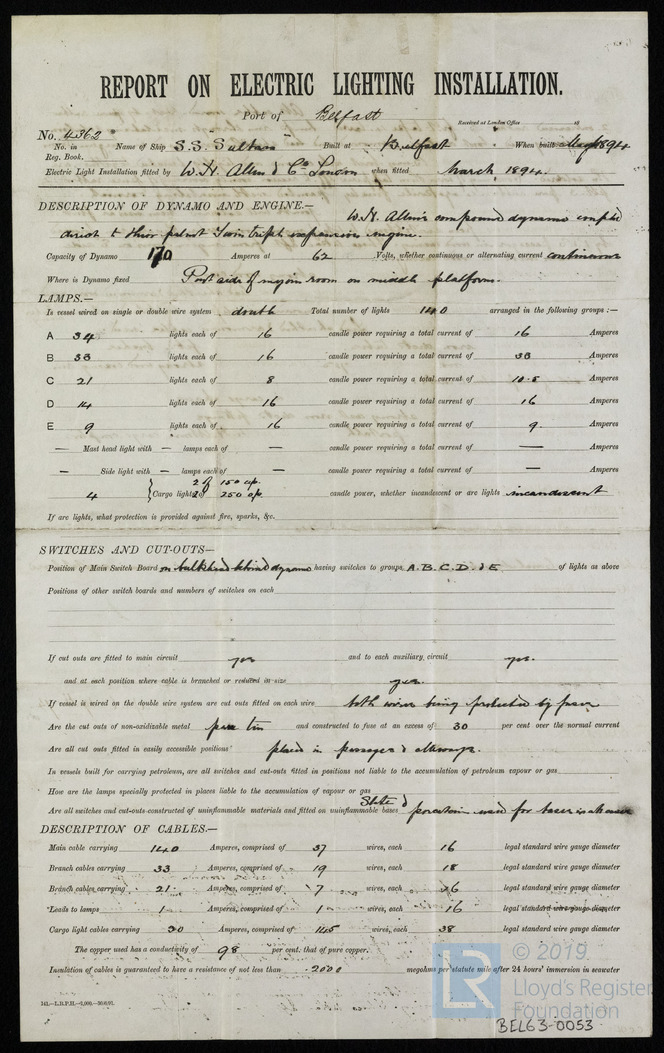 REPORT ON ELECTRIC LIGHTING INSTALLATION.
Port of Belfast Received at London Office 18
No. 4362
No. in Reg. Book. Name of Ship S.S. Sultan Built at Belfast When built May 1894
Electric Light Installation fitted by W. H. Allen & Co London when fitted March 1894.
DESCRIPTION OF DYNAMO AND ENGINE.— W. H. Allen's compound dynamo coupled
direct to their patent Twin triple expansion engine.
Capacity of Dynamo 170 Amperes at 62 Volts, whether continuous or alternating current continuous
Where is Dynamo fixed Port side of engine room on middle platform.
LAMPS.—
Is vessel wired on single or double wire system double Total number of lights 140 arranged in the following groups :—
A 34 lights each of 16 candle power requiring a total current of 16 Amperes
B 33 lights each of 16 candle power requiring a total current of 33 Amperes
C 21 lights each of 8 candle power requiring a total current of 10.5 Amperes
D 14 lights each of 16 candle power requiring a total current of 16 Amperes
E 9 lights each of 16 candle power requiring a total current of 9. Amperes
— Mast head light with — lamps each of — candle power requiring a total current of — Amperes
— Side light with — lamps each of — candle power requiring a total current of — Amperes
2 of 150 cp.
4 Cargo lights of 2 250 cp. candle power, whether incandescent or arc lights incandescent
If arc lights, what protection is provided against fire, sparks, &c.
SWITCHES AND CUT-OUTS—
Position of Main Switch Board on bulkhead behind dynamo having switches to groups A. B. C. D. & E of lights as above
Positions of other switch boards and numbers of switches on each
If cut outs are fitted to main circuit yes and to each auxiliary circuit yes.
and at each position where cable is branched or reduced in size yes.
If vessel is wired on the double wire system are cut outs fitted on each wire both wires being protected by fuses
Are the cut outs of non-oxidizable metal pure tin and constructed to fuse at an excess of 30 per cent over the normal current
Are all cut outs fitted in easily accessible positions placed in passages & alleyways.
In vessels built for carrying petroleum, are all switches and cut-outs fitted in positions not liable to the accumulation of petroleum vapour or gas
How are the lamps specially protected in places liable to the accumulation of vapour or gas
Are all switches and cut-outs constructed of uninflammable materials and fitted on uninflammable bases Slate & porcelain used for bases in all cases
DESCRIPTION OF CABLES.—
Main cable carrying 140 Amperes, comprised of 37 wires, each 16 legal standard wire gauge diameter
Branch cables carrying 33 Amperes, comprised of 19 wires, each 18 legal standard wire gauge diameter
Branch cables carrying 21 Amperes, comprised of 7 wires, each 16 legal standard wire gauge diameter
Leads to lamps 1 Amperes, comprised of 1 wires, each 16 legal standard wire gauge diameter
Cargo light cables carrying 30 Amperes, comprised of 145 wires, each 38 legal standard wire gauge diameter
The copper used has a conductivity of 98 per cent. that of pure copper.
Insulation of cables is guaranteed to have a resistance of not less than 2000 megohms per statute mile after 24 hours' immersion in seawater
© 2019.
LR Lloyd's Register
Foundation
BEL63-0053